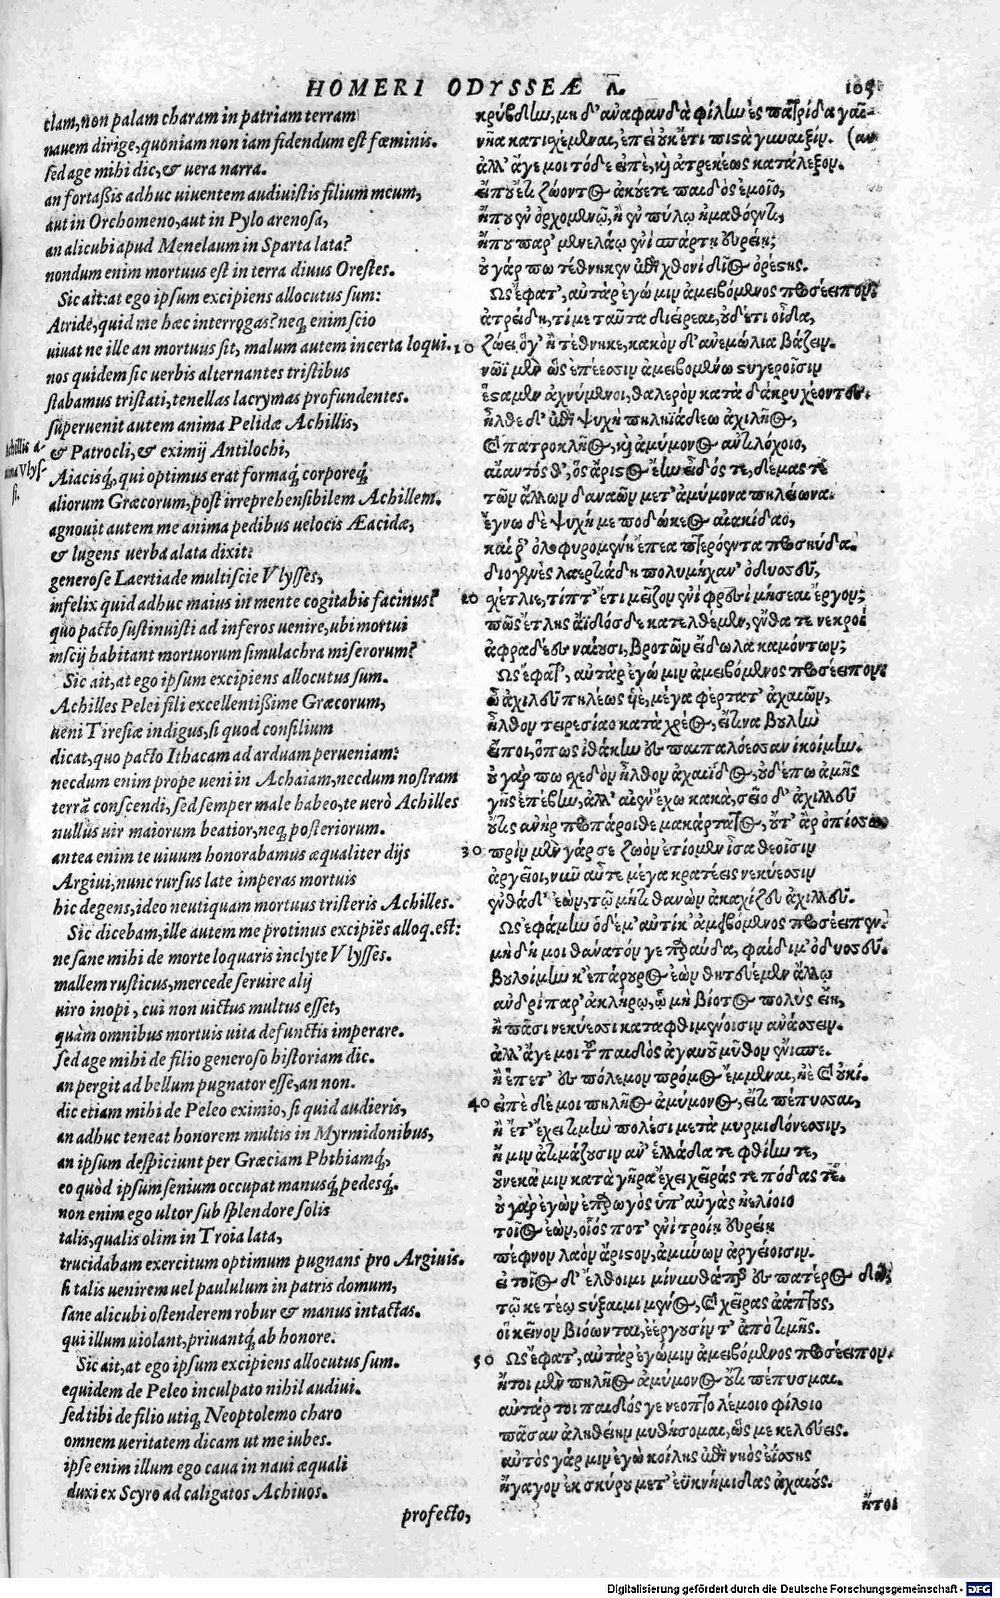 HOMERI ODYSSEÆ Λ. 165
clam, non palam charam in patriam terram
nauem dirige, quoniam non iam fidendum est fœminis.
sed age mihi dic, & uera narra.
an fortaßis adhuc uiuentem audiuistis filium meum,
aut in Orchomeno, aut in Pylo arenosa,
an alicubi apud Menelaum in Sparta lata?
nondum enim mortuus est in terra diuus Orestes.
Sic ait: at ego ipsum excipiens allocutus sum:
Atride, quid me hæc interrogas? neq; enim scio
uiuat ne ille an mortuus sit, malum autem incerta loqui.
nos quidem sic uerbis alternantes tristibus
stabamus tristati, tenellas lacrymas profundentes.
superuenit autem anima Pelidæ Achillis,
& Patrocli, & eximij Antilochi,
Aiacisq;, qui optimus erat formaq; corporeq;
aliorum Græcorum, post irreprehensibilem Achillem.
agnouit autem me anima pedibus uelocis Æacidæ,
& lugens uerba alata dixit:
generose Laertiade multiscie Vlysses,
infelix quid adhuc maius in mente cogitabis facinus?
quo pacto sustinuisti ad inferos uenire, ubi mortui
inscij habitant mortuorum simulachra miserorum?
Sic ait, at ego ipsum excipiens allocutus sum.
Achilles Pelei fili excellentißime Græcorum,
ueni Tiresiæ indigus, si quod consilium
dicat, quo pacto Ithacam ad arduam perueniam:
necdum enim prope ueni in Achaiam, necdum nostram
terrã conscendi, sed semper male habeo, te uerò Achilles
nullus uir maiorum beatior, neq; posteriorum.
antea enim te uiuum honorabamus æqualiter dijs
Argiui, nunc rursus late imperas mortuis
hic degens, ideo neutiquam mortuus tristeris Achilles.
Sic dicebam, ille autem me protinus excipiẽs alloq. est:
ne sane mihi de morte loquaris inclyte Vlysses.
mallem rusticus, mercede seruire alij
uiro inopi, cui non uictus multus esset,
quàm omnibus mortuis uita defunctis imperare.
sed age mihi de filio generoso historiam dic.
an pergit ad bellum pugnator esse, an non.
dic etiam mihi de Peleo eximio, si quid audieris,
an adhuc teneat honorem multis in Myrmidonibus,
an ipsum despiciunt per Græciam Phthiamq;,
eo quòd ipsum senium occupat manusq; pedesq;.
non enim ego ultor sub splendore solis
talis, qualis olim in Troia lata,
trucidabam exercitum optimum pugnans pro Argiuis.
si talis uenirem uel paululum in patris domum,
sane alicubi ostenderem robur & manus intactas.
qui illum uiolant, priuantq; ab honore.
Sic ait, at ego ipsum excipiens allocutus sum.
equidem de Peleo inculpato nihil audiui.
sed tibi de filio utiq; Neoptolemo charo
omnem ueritatem dicam ut me iubes.
ipse enim illum ego caua in naui æquali
duxi ex Scyro ad caligatos Achiuos.
profecto,
Achillis a-
nima Vlys-
si.
κρύβδην, μηδ' ἀναφανδὰ φίλην ἐς πατρίδα γαῖ-
νῆα κατισχέμεναι, ἐπεὶ οὐκέτι πιστὰ γυναιξίν. (αν
ἀλλ' ἄγε μοι τόδε εἰπὲ, καὶ ἀτρεκέως κατάλεξον.
εἴπου ἔτι ζώοντος ἀκούετε παιδὸς ἐμοῖο,
ἤπου ἐν ὀρχομενῷ, ἢ ἐν πύλῳ ἠμαθόεντι,
ἤπου παρ' μενελάῳ ἐνὶ σπάρτῃ εὐρείῃ;
οὐ γάρ πω τέθνηκεν ἐπὶ χθονὶ δῖος ὀρέστης.
Ὣς ἔφατ', αὐτὰρ ἐγώ μιν ἀμειβόμενος προσέειπον.
ἀτρείδη, τί με ταῦτα διείρεαι, οὐδέ τι οἶδα,
10 ζώει ὅγ' ἢ τέθνηκε, κακὸν δ' ἀνεμώλια βάζειν.
νῶϊ μὲν ὣς ἐπέεσσιν ἀμειβομένω στυγεροῖσιν
ἕσταμεν ἀχνύμενοι, θαλερὸν κατὰ δάκρυ χέοντες.
ἦλθε δ' ἐπὶ ψυχὴ πηληϊάδεω ἀχιλῆος,
καὶ πατροκλῆος, καὶ ἀμύμονος ἀντιλόχοιο,
αἴαντός θ', ὃς ἄριστος ἔην εἶδός τε, δέμας τε
τῶν ἄλλων δαναῶν μετ' ἀμύμονα πηλείωνα.
ἔγνω δὲ ψυχή με ποδώκεος αἰακίδαο,
καί ῥ' ὀλοφυρομένη ἔπεα πτερόεντα προσηύδα.
διογενὲς λαερτιάδη πολυμήχαν' ὀδυσσεῦ,
20 σχέτλιε, τίπτ' ἔτι μεῖζον ἐνὶ φρεσὶ μήσεαι ἔργον;
πῶς ἔτλης ἄϊδόσδε κατελθέμεν, ἔνθα τε νεκροὶ
ἀφραδέες ναίουσι, βροτῶν εἴδωλα καμόντων;
Ὣς ἔφατ', αὐτὰρ ἐγώ μιν ἀμειβόμενος προσέειπον.
ὦ ἀχιλεῦ πηλέως υἱὲ, μέγα φέρτατ' ἀχαιῶν,
ἦλθον τειρεσίαο κατὰ χρέος, εἴ τινα βουλὴν
εἴποι, ὅπως ἰθάκην ἐς παιπαλόεσσαν ἱκοίμην.
οὐ γάρ πω σχεδὸν ἦλθον ἀχαιΐδος, οὐδέ πω ἀμῆς
γῆς ἐπέβην, ἀλλ' αἰὲν ἔχω κακὰ, σεῖο δ' ἀχιλλεῦ
οὔτις ἀνὴρ προπάροιθε μακάρτατος, οὔτ' ἄρ ὀπίσσω
30 πρὶν μὲν γάρ σε ζωὸν ἐτίομεν ἶσα θεοῖσιν
ἀργεῖοι, νῦν αὖτε μέγα κρατέεις νεκύεσσιν
ἐνθάδ' ἐὼν, τῷ μήτι θανὼν ἀκαχίζευ ἀχιλλεῦ.
Ὣς ἐφάμην ὁ δέ μ' αὐτίκ' ἀμειβόμενος προσέειπεν.
μὴ δή μοι θάνατόν γε παραύδα, φαίδιμ' ὀδυσσεῦ.
Βουλοίμην κ' ἐπάρουρος ἐὼν θητευέμεν ἄλλῳ
ἀνδρὶ παρ' ἀκλήρῳ, ᾧ μὴ βίοτος πολὺς εἴη,
ἢ πᾶσι νεκύεσσι καταφθιμένοισιν ἀνάσσειν.
ἀλλ' ἄγε μοι τοῦ παιδὸς ἀγαυοῦ μῦθον ἔνισπε.
ἢ ἕπετ' ἐς πόλεμον πρόμος ἔμμεναι, ἠὲ καὶ οὐκί.
40 εἰπὲ δέ μοι πηλῆος ἀμύμονος, εἴ τι πέπυσσαι,
ἢ ἔτ' ἔχει τιμὴν πολέσι μετὰ μυρμιδόνεσσιν,
ἤ μιν ἀτιμάζουσιν ἀν' ἑλλάδα τε φθίην τε,
οὕνεκά μιν κατὰ γῆρας ἔχει χεῖράς τε πόδας τε.
οὐ γὰρ ἐγὼν ἐπαρωγὸς ὑπ' αὐγὰς ἠελίοιο
τοῖος ἐὼν, οἷός ποτ' ἐνὶ τροίῃ εὐρείῃ
πέφνον λαὸν ἄριστον, ἀμύνων ἀργείοισιν.
εἰ τοῖος δ' ἔλθοιμι μίνυνθά περ ἐς πατέρος δῶ,
τῷ κέ τέῳ στύξαιμι μένος, καὶ χεῖρας ἀάπτους,
οἳ κεῖνον βιόωνται, ἐέργουσίν τ' ἀπὸ τιμῆς.
50 Ὣς ἔφατ', αὐτὰρ ἐγώ μιν ἀμειβόμενος προσέειπον.
ἤτοι μὲν πηλῆος ἀμύμονος οὔτι πέπυσμαι.
αὐτάρ τοι παιδός γε νεοπτολέμοιο φίλοιο
πᾶσαν ἀληθείην μυθήσομαι, ὥς με κελεύεις.
αὐτὸς γάρ μιν ἐγὼ κοίλης ἐπὶ νηὸς ἐΐσης
ἤγαγον ἐκ σκύρου μετ' ἐϋκνήμιδας ἀχαιούς.
ἤτοι
Digitalisierung gefördert durch die Deutsche Forschungsgemeinschaft - DFG